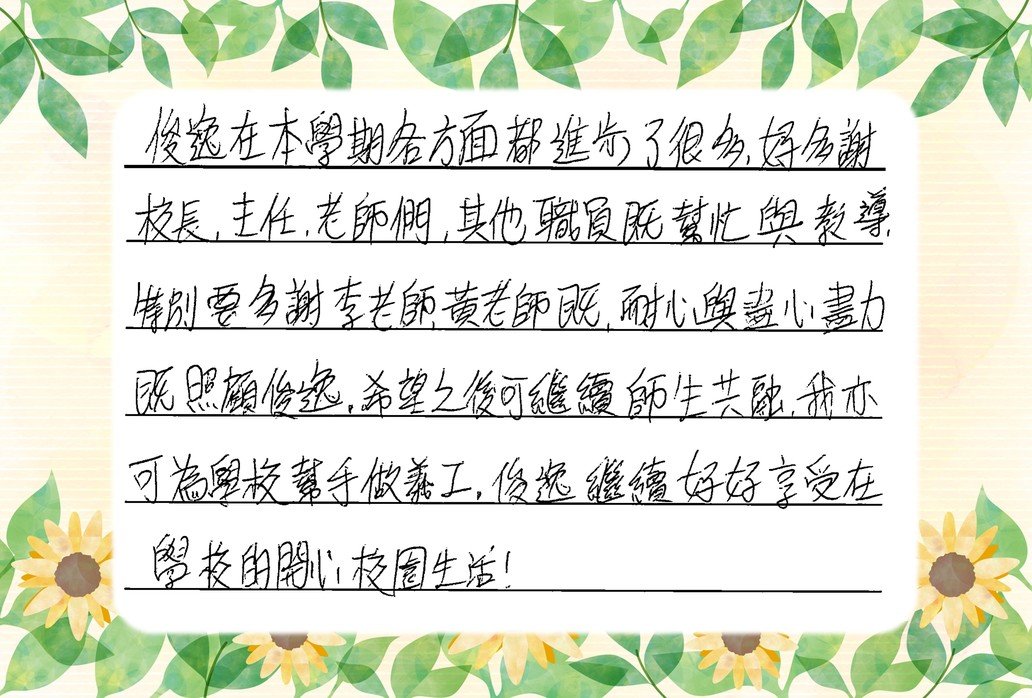 俊逸在本學期各方面都進步了很多,好多謝
校長,主任,老師們,其他職員既幫忙與教導,
特別要多謝李老師,黃老師既,耐心與盡心盡力
既照顧俊逸,希望之後可繼續師生共融,我亦
可為學校幫手做義工,俊逸繼續好好享受在
學校的開心校園生活!